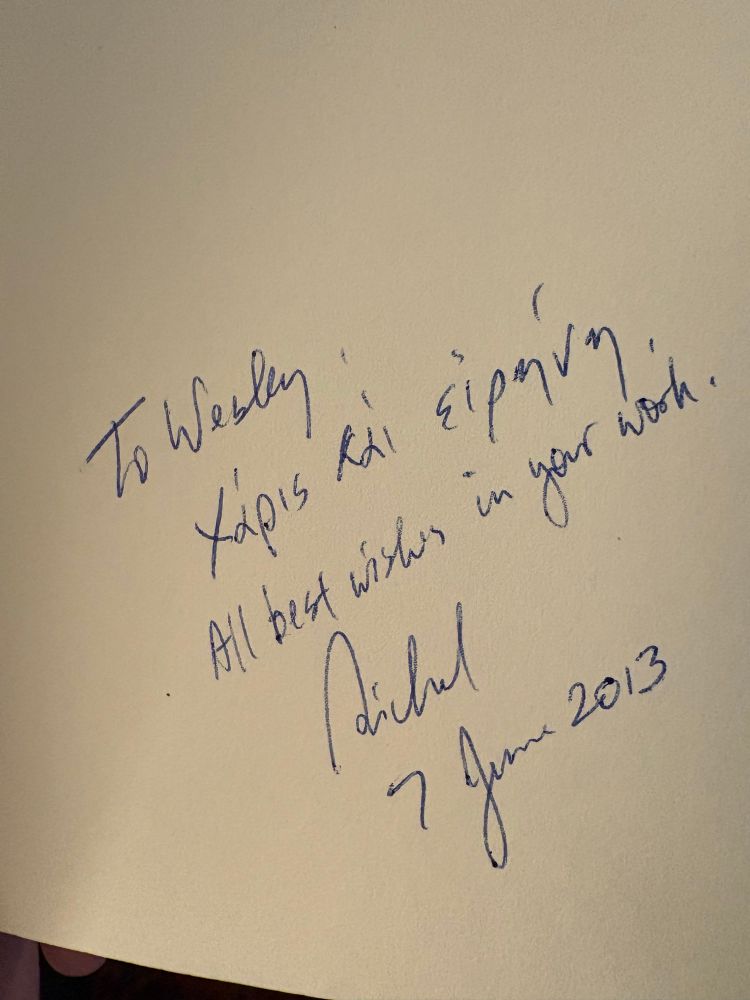 To Wesley:
χάρις καὶ εἰρήνη.
All best wishes in your work.
Michael
7 June 2013